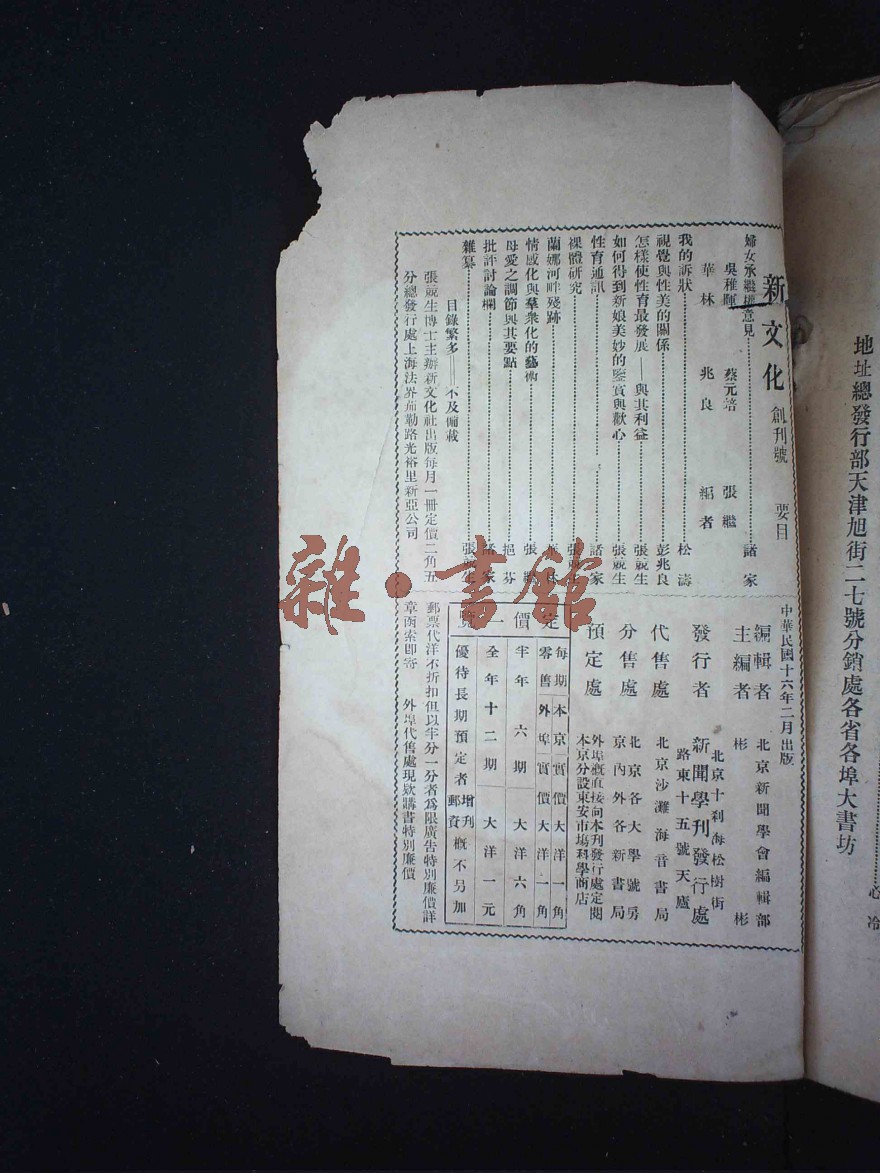 地址總發行部天津旭街二七號分銷處各省各埠大書坊
心冷
新文化 創刊號 要目
婦女承繼權意見 諸家
吳稚暉 蔡元培 張繼
華林 兆良 編者
我的訴狀 松濤
視覺與性美的關係 彭兆良
怎樣使性育最發展——與其利益 張競生
如何得到新娘美妙的鑒賞與歡心 張競生
性育通訊 諸家
裸體研究 張競生
蘭娜河畔殘跡 華林
情感化與羣衆化的藝術 張
母愛之調節與其要點 挹芬
批評討論欄 諸家
雜纂 張競生
目錄繁多——不及備載
張競生博士主辦新文化社出版每月一冊定價二角五
分總發行處上海法界茄勒路光裕里新亞公司
中華民國十六年二月出版
編輯者 北京新聞學會編輯部
主編者 彬彬
發行者 北京十刹海松樹街
路東十五號天廬
新聞學刊發行處
代售處 北京沙灘海音書局
分售處 北京各大學號房
京內外各新書局
預定處 外埠概直接向本刊發行處定閱
本京分設東安市場科學商店
定價一覽
每期零售 本京實價大洋一角
外埠實價大洋一角
半年六期 大洋六角
全年十二期 大洋一元
優待長期預定者增刊郵資概不另加
郵票代洋不折扣但以半分一分者爲限廣告特別廉價詳
章函索即寄 外埠代售處現欵購書特別廉價
雜·書館